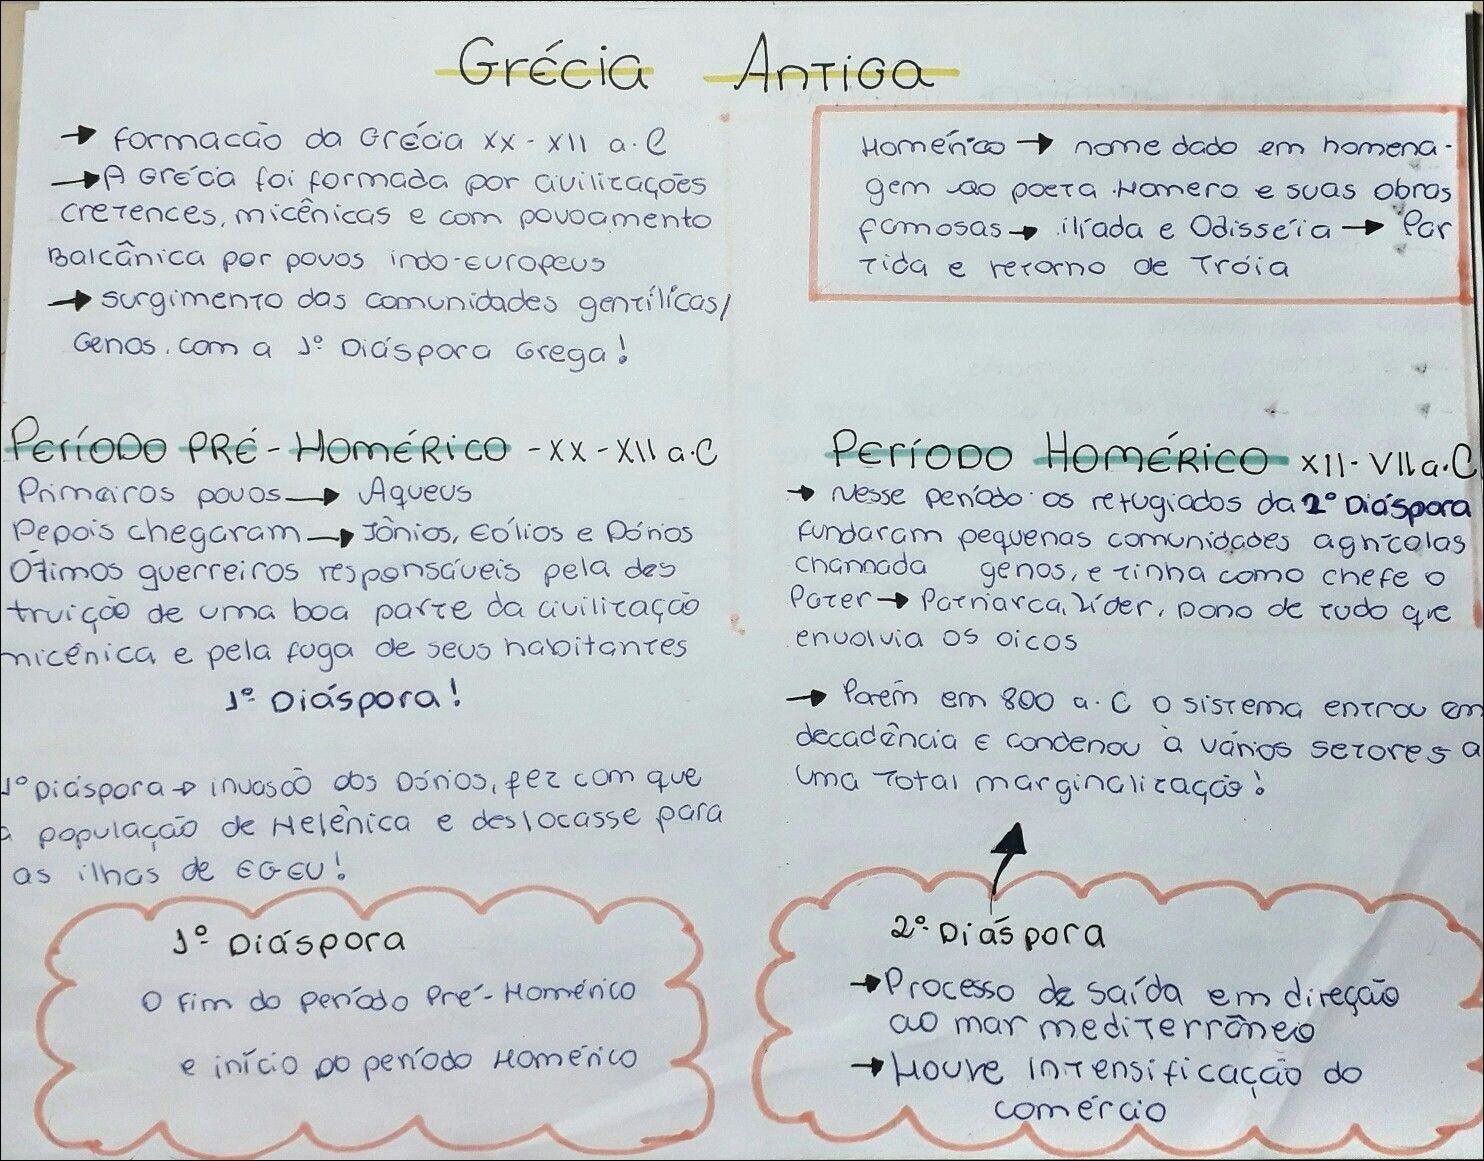 Grécia Antiga
→ Formacção da Grécia XX - XII a.C
→ A Grécia foi formada por civilizações
cretences, micênicas e com povoamento
Balcânica por povos indo-europeus
→ surgimento das comunidades gentílicas/
Genos. com a 1º Diáspora Grega!
Homérico → nome dado em homena-
gem ao poeta Homero e suas obras
famosas → ilíada e Odisséia → Par
tida e retorno de Tróia
Período Pré-Homérico - XX - XII a.C
Primeiros povos → Aqueus
Depois chegaram → Jônios, Eólios e Dórios
Ótimos guerreiros responsáveis pela des
truição de uma boa parte da civilização
micênica e pela fuga de seus habitantes
1º Diáspora!
1º Diáspora → invasão dos Dórios, fez com que
a população de Helênica e deslocasse para
as ilhas de EGEU!
1º Diáspora
O fim do período Pré-Homérico
e início do período Homérico
Período Homérico XII - VII a.C
→ Nesse período os refugiados da 2º Diáspora
fundaram pequenas comunidades agrícolas
channada genos, e tinha como chefe o
Pater → Patriarca, Líder, Dono de tudo que
envolvia os oicos
→ Porém em 800 a.C o sistema entrou em
decadência e condenou à vários setores a
uma total marginalização!
2º Diáspora
→ Processo de saída em direção
ao mar mediterrâneo
→ Houve intensificação do
comércio